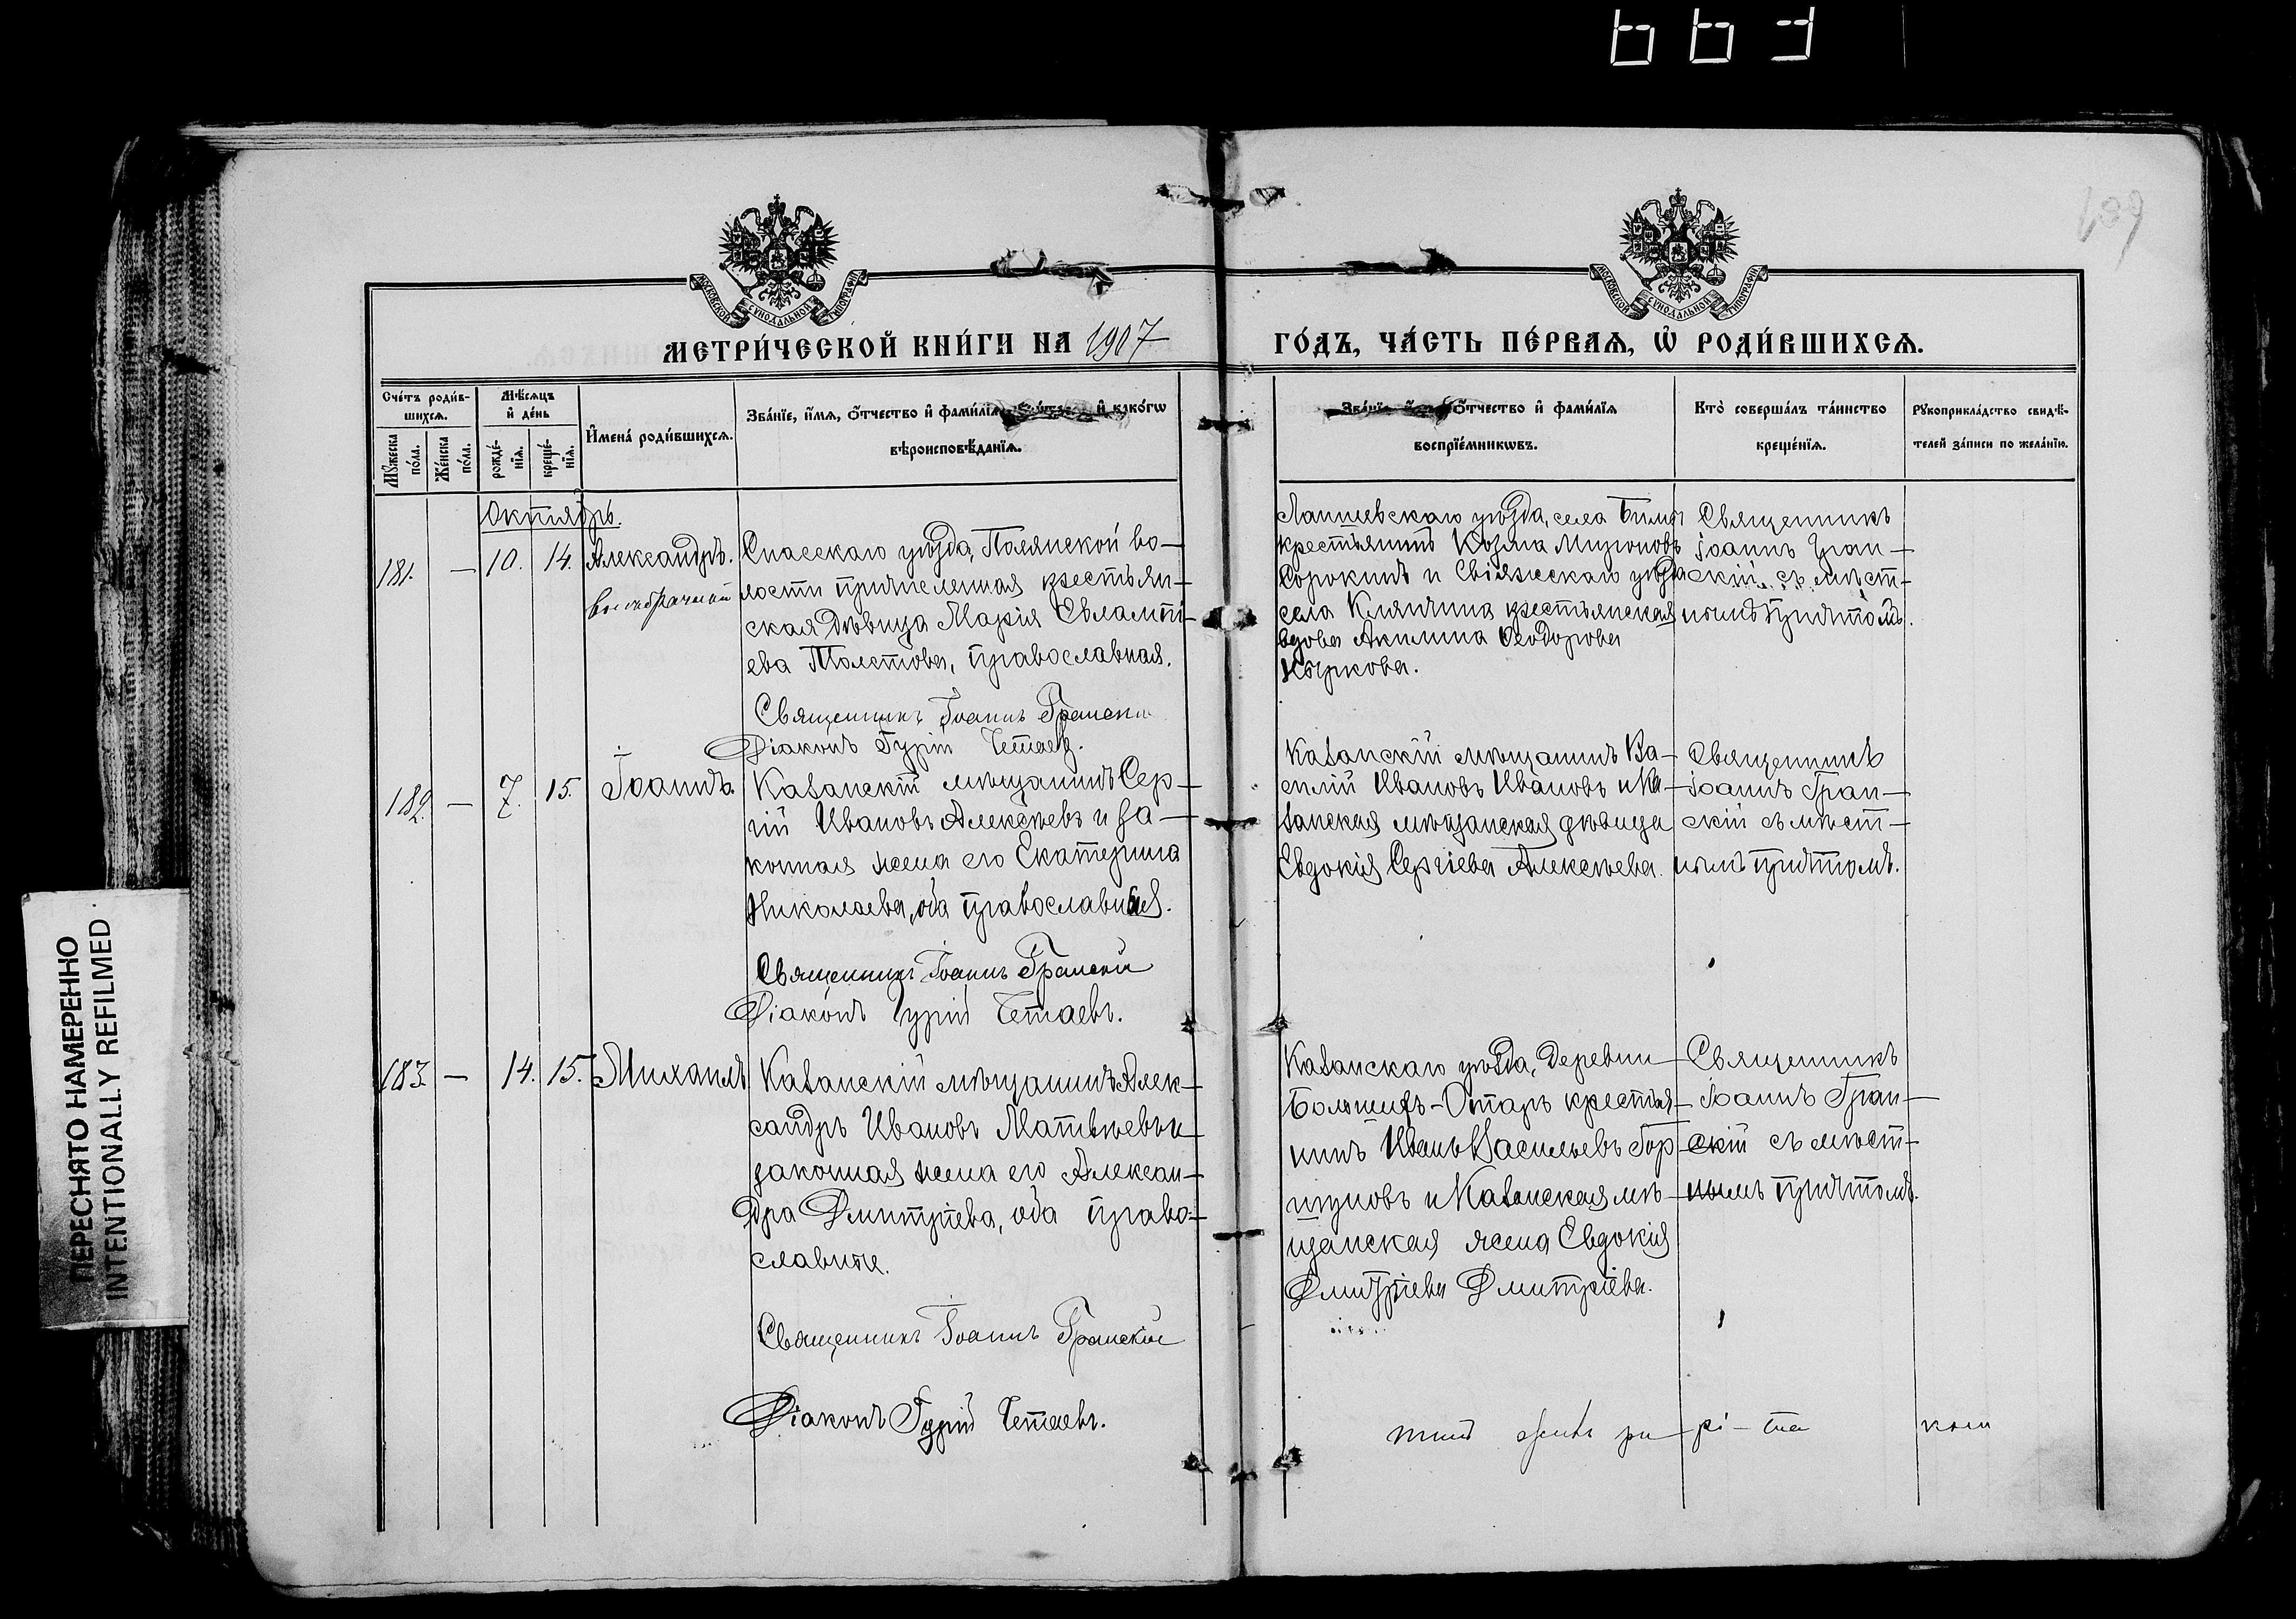 663
139
МОСКОВСКОЙ СѴНОДАЛЬНОЙ ТИПОГРАФІИ
МОСКОВСКОЙ СѴНОДАЛЬНОЙ ТИПОГРАФІИ
МЕТРИ́ЧЕСКОЙ КНИ́ГИ НА 1907
ГО́ДЪ, ЧА́СТЬ ПЕ́РВАѦ, Ѡ҆ РОДИ́ВШИХСѦ.
Сче́тъ роди́в-
шихсѧ.
Мꙋ́жеска по́ла.
Же́нска по́ла.
Мѣ́сѧцъ и҆ де́нь
рожде́-нїѧ.
креще́-нїѧ.
И҆мена̀ роди́вшихсѧ.
Зва́нїе, и҆́мѧ, ѻ҆́тчество и҆ фами́лїѧ и҆ како́гѡ
вѣроисповѣ́данїѧ.
ѻ҆́тчество и҆ фами́лїѧ
воспрїе́мникѡвъ.
Кто̀ соверша́лъ та́инство
креще́нїѧ.
Рꙋкоприкла́дство свидѣ́-
телей за́писи по жела́нїю.
Октябрь.
181. — 10. 14. Александръ.
внебрачный
Спасскаго уѣзда, Полянской во-
лости причисленная крестьян-
ская дѣвица Марія Евлампі-
ева Толстова, православная.
Священникъ Іоаннъ Гранскі
Діаконъ Гурій Четаев.
Лаишевскаго уѣзда, села
крестьянинъ Козма
Сорокинъ и Свіяжскаго уѣзда
села Клянчина крестьянская
вдова Акилина Ѳеодорова
Священникъ
Іоаннъ Гран-
скій съ мѣст-
нымъ причтомъ.
182. — 7. 15. Іоаннъ.
Казанскій мѣщанинъ Сер-
гій Ивановъ Алексѣевъ и за-
конная жена его Екатерина
Николаева, оба православныя.
Священникъ Іоаннъ Гранскій
Діаконъ Гурій Четаевъ.
Казанскій мѣщанинъ Ва-
силій Ивановъ Ивановъ и Ка-
занская мѣщанская дѣвица
Евдокія Сергіева Алексѣева.
Священникъ
Іоаннъ Гран-
скій съ мѣст-
нымъ причтомъ.
183. — 14. 15. Михаилъ
Казанскій мѣщанинъ Алек-
сандръ Ивановъ Матвѣевъ и
законная жена его Алексан-
дра Дмитріева, оба право-
славные.
Священникъ Іоаннъ Гранскій
Діаконъ Гурій Четаевъ.
Казанскаго уѣзда, деревни
Большихъ-Отаръ крестья-
нинъ Иванъ Васильевъ Гор-
шуновъ и Казанская мѣ-
щанская жена Евдокія
Дмитріева Дмитріева.
Священникъ
Іоаннъ Гран-
скій съ мѣст-
нымъ причтомъ.
ПЕРЕСНЯТО НАМЕРЕННО
INTENTIONALLY REFILMED